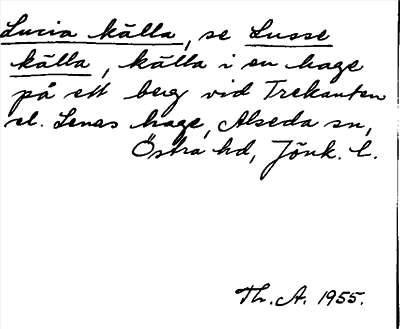 Lucia källa, se Lusse
källa, källa i en hage
på ett berg vid Trekanten
el. Lenas hage, Alseda sn,
Östra hd, Jönk. l.
Th. A. 1955.